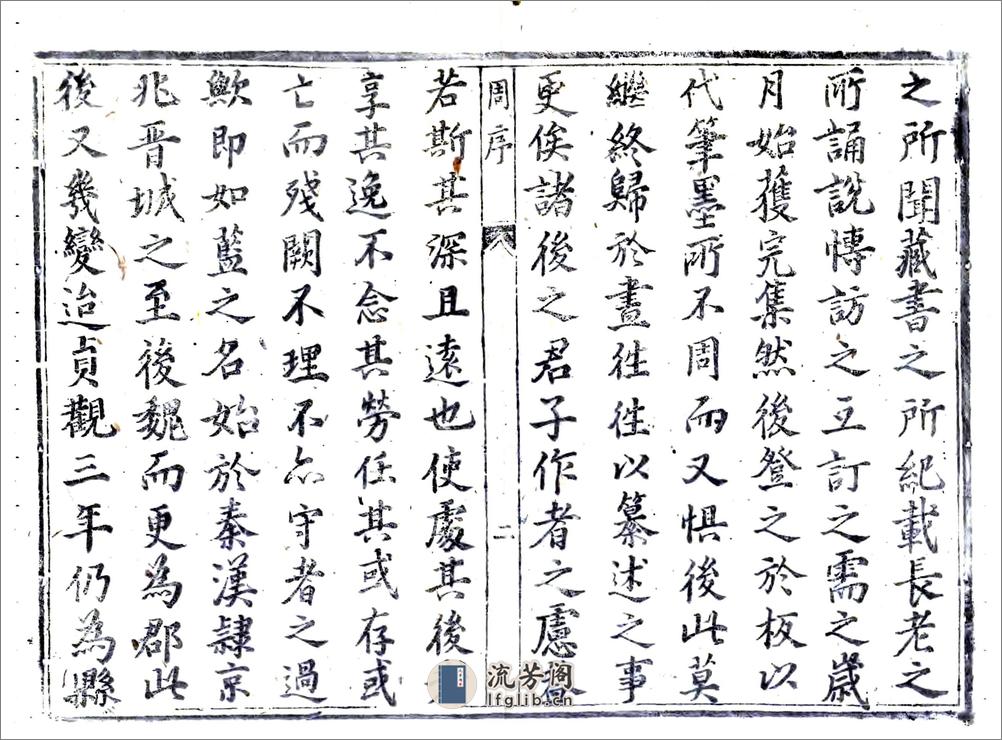 之所聞藏書之所紀載長老之
所誦說慱訪之互訂之需之歲
月始獲完集然後登之於板以
代筆墨所不周而又惧後此莫
繼終歸於晝徃徃以纂述之事
更俟諸後之君子作者之慮
周序
二
若斯其深且遠也使處其後
享其逸不念其勞任其或存或
亡而殘闕不理不亦守者之過
歟即如藍之名始於秦漢隷京
兆晋城之至後魏而更為郡此
後又幾變迨貞觀三年仍為縣
流芳阁
lfglib.cn